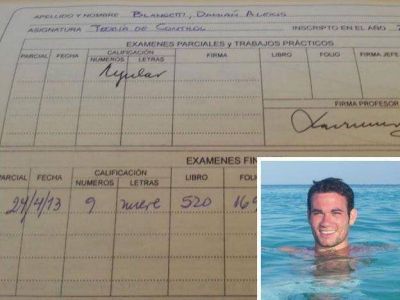 APELLIDO Y NOMBRE Blanchetti, Damián Alexis
ASIGNATURA Teoría de Control INSCRIPTO EN EL AÑO
EXAMENES PARCIALES y TRABAJOS PRÁCTICOS
PARCIAL FECHA CALIFICACIÓN FIRMA LIBRO FOLIO FIRMA JEFE
NUMEROS LETRAS
Regular
FIRMA PROFESOR
EXAMENES FIN
PARCIAL FECHA CALIFICACIÓN LIBRO FOLI
NUMEROS LETRAS
24/4/13 9 nueve 520 169